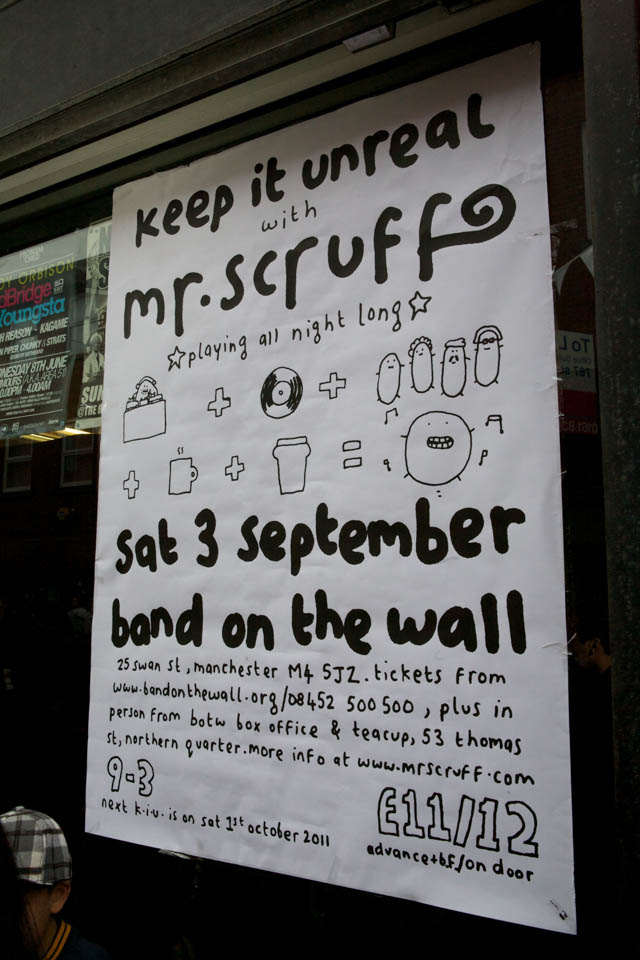 keep it unreal
with
mr.scruff
playing all night long
sat 3 september
band on the wall
25 swan st, manchester M4 5JZ. tickets from
www.bandonthewall.org/08452 500 500, plus in
person from botw box office & teacup, 53 thomas
st, northern quarter. more info at www.mrscruff.com
9-3
next k.i.u. is on sat 1st october 2011
£11/12
advance+b.f./on door
ORBISON
dBridge
Youngsta
REASON - KAGAME
PIPER CHUNKY & STRATS
8TH JUNE
4.00AM
SUN
To L